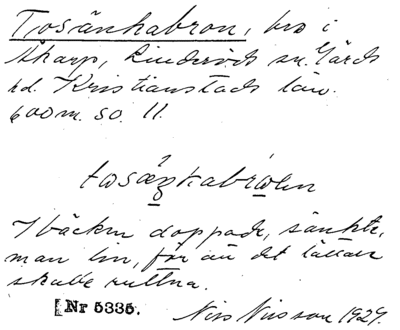 Tosänkabron, bro i
Skarp, Linderöds sn. Gärds
hd. Kristianstads län.
600 m. so. 11.
I bäcken doppade, sänkte,
man lin, för att det lättare
skulle ruttna.
Nr 5335.
Nils Nilsson 1929.